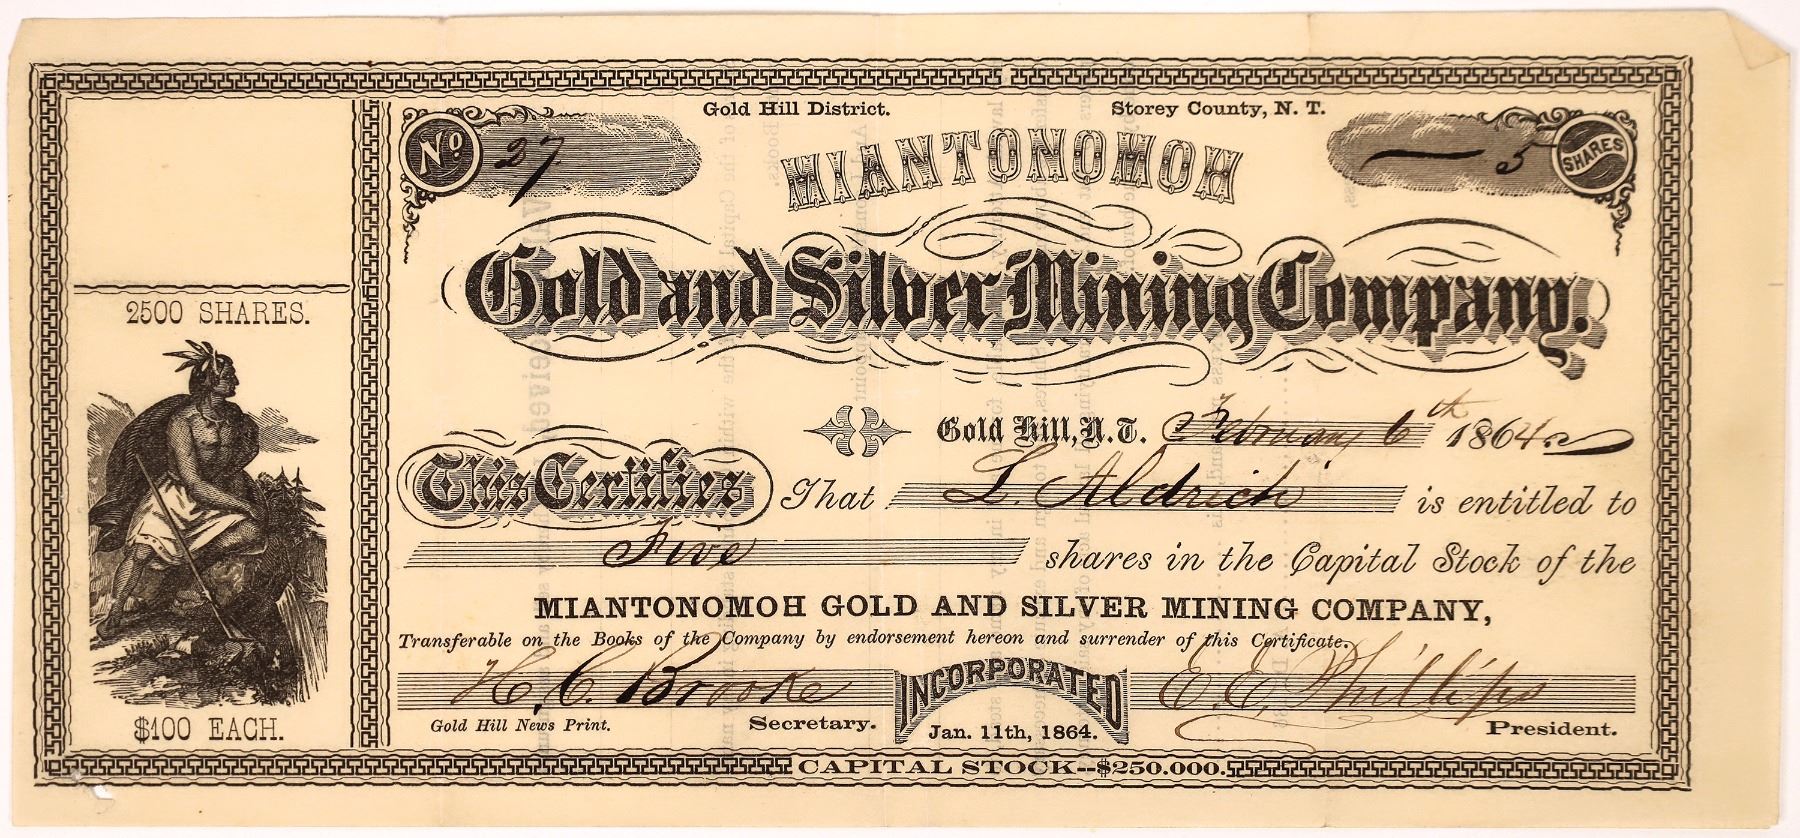 Gold Hill District. Storey County, N. T.
No. 27
5 SHARES
MIANTONOMOH
Gold and Silver Mining Company.
2500 SHARES.
$100 EACH.
Gold Hill, N. T. February 6th 1864
This Certifies That L. Aldrich is entitled to
Five shares in the Capital Stock of the
MIANTONOMOH GOLD AND SILVER MINING COMPANY,
Transferable on the Books of the Company by endorsement hereon and surrender of this Certificate.
H. C. Brooke INCORPORATED E. E. Phillips
Gold Hill News Print. Secretary. Jan. 11th, 1864. President.
CAPITAL STOCK--$250.000.